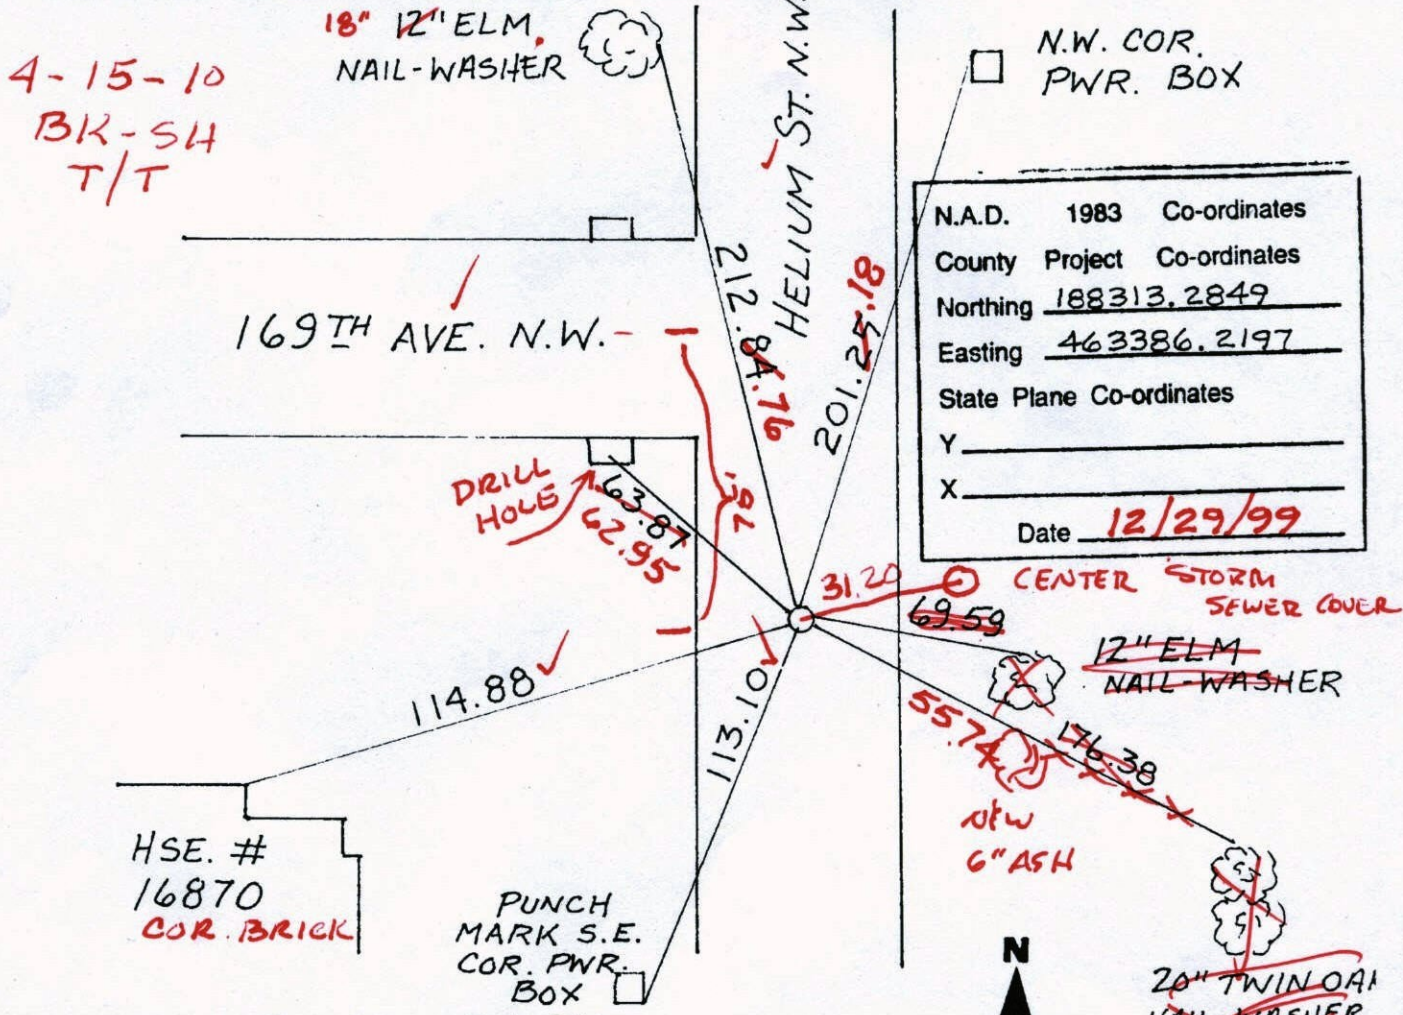 18" 12" ELM
NAIL-WASHER
4-15-10
BK-SH
T/T
HELIUM ST. N.W.
N.W. COR.
PWR. BOX
N.A.D. 1983 Co-ordinates
County Project Co-ordinates
Northing 188313.2849
Easting 463386.2197
State Plane Co-ordinates
Y
X
Date 12/29/99
169TH AVE. N.W.
212.84 .76
201.25 .18
DRILL
HOLE
63.87
62.95
31.20
CENTER STORM
SEWER COVER
69.59
12" ELM
NAIL-WASHER
114.88
113.10
55.74
176.38
NEW
6" ASH
HSE. #
16870
COR. BRICK
PUNCH
MARK S.E.
COR. PWR.
BOX
N
20" TWIN OA